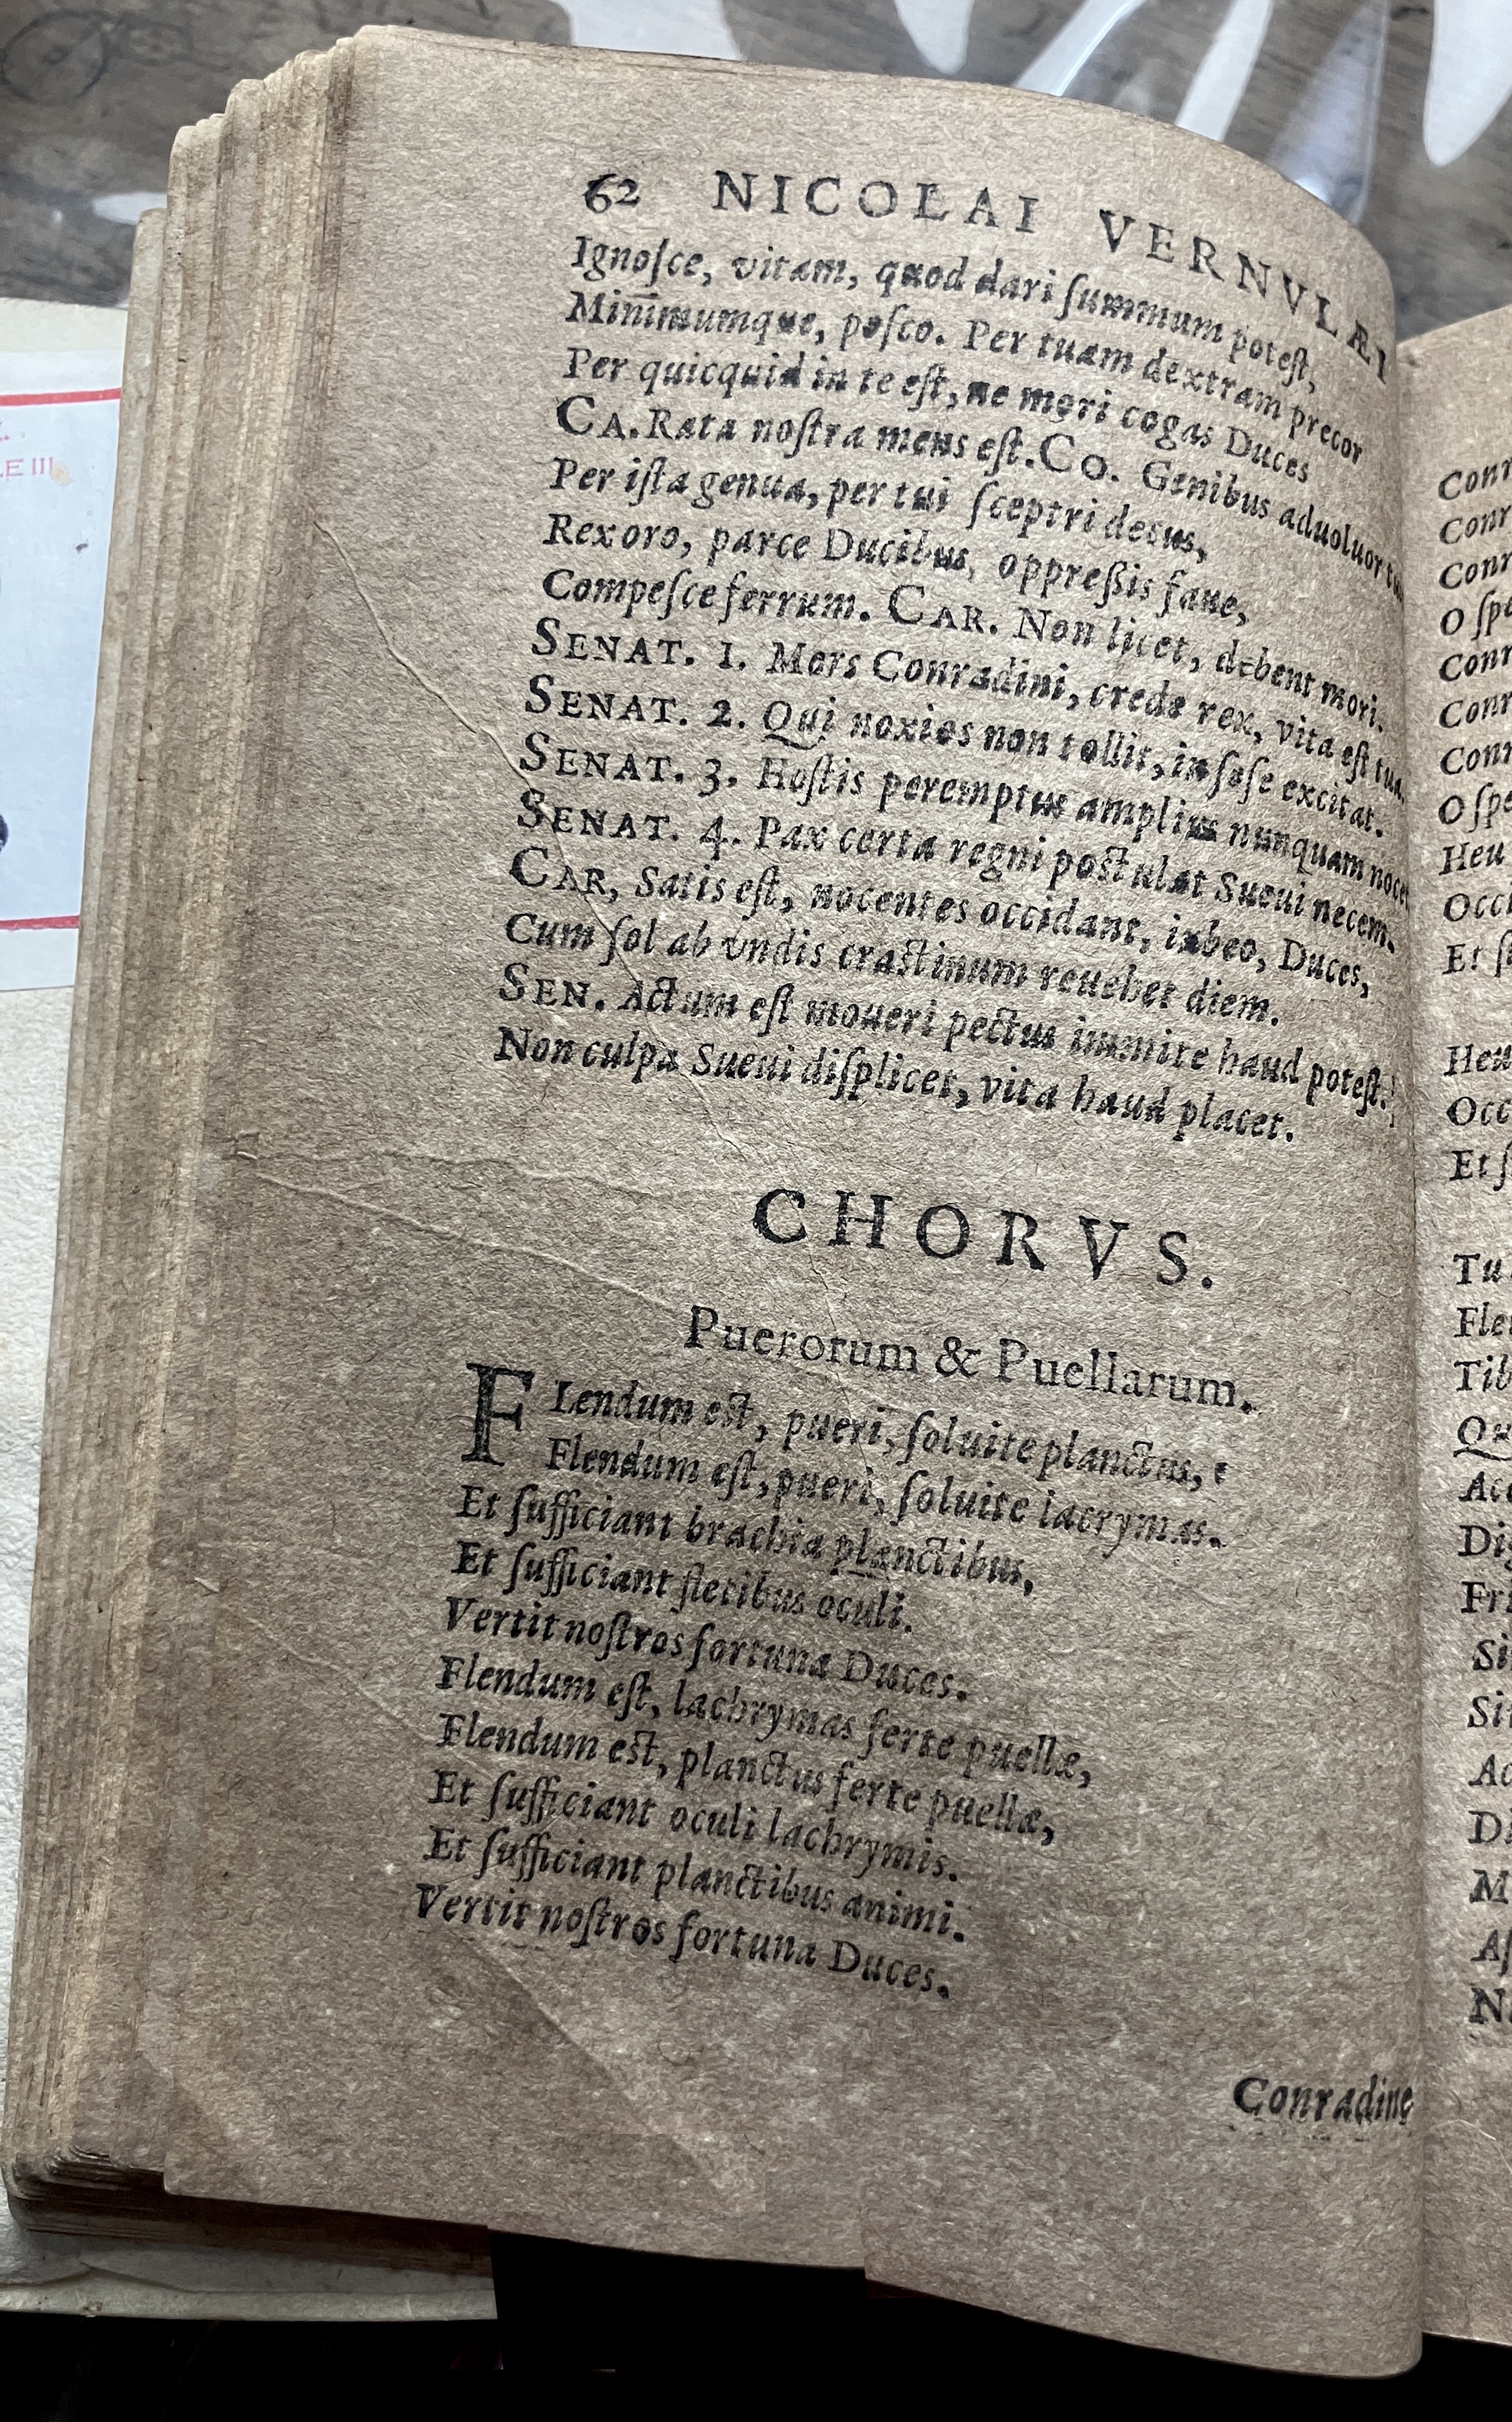 62 NICOLAI VERNVLÆI
Ignoſce, vitam, quod dari ſummum poteſt,
Minimumque, poſco. Per tuam dextram precor
Per quicquid in te eſt, ne mori cogas Duces
CA. Rata noſtra mens eſt. CO. Genibus aduoluor
Per iſta genua, per tui ſceptri decus,
Rex oro, parce Ducibus, oppreßis faue,
Compeſce ferrum. CAR. Non licet, debent mori.
SENAT. 1. Mors Conradini, crede rex, vita eſt tua.
SENAT. 2. Qui noxios non tollit, in ſeſe excitat.
SENAT. 3. Hoſtis peremptus amplius nunquam nocet
SENAT. 4. Pax certa regni poſtulat Sueui necem.
CAR, Satis eſt, nocentes occidant, iubeo, Duces,
Cum ſol ab vndis craſtinum reuehet diem.
SEN. Actum eſt moueri pectus immite haud poteſt.
Non culpa Sueui diſplicet, vita haud placet.
CHORVS.
Puerorum & Puellarum.
FLendum eſt, pueri, ſoluite planctus,
Flendum eſt, pueri, ſoluite lacrymas.
Et ſufficiant brachia planctibus,
Et ſufficiant fletibus oculi.
Vertit noſtros fortuna Duces.
Flendum eſt, lachrymas ferte puellæ,
Flendum eſt, planctus ferte puellæ,
Et ſufficiant oculi lachrymis.
Et ſufficiant planctibus animi.
Vertit noſtros fortuna Duces.
Conradine
Conr
Conr
Conr
O ſpe
Conr
Conr
Conr
O ſpe
Heu
Occi
Et ſi
Heu
Occ
Et ſ
Tu
Fle
Tib
Qu
Acc
Dig
Fri
Si
Sit
Ac
D
M
Aſ
N